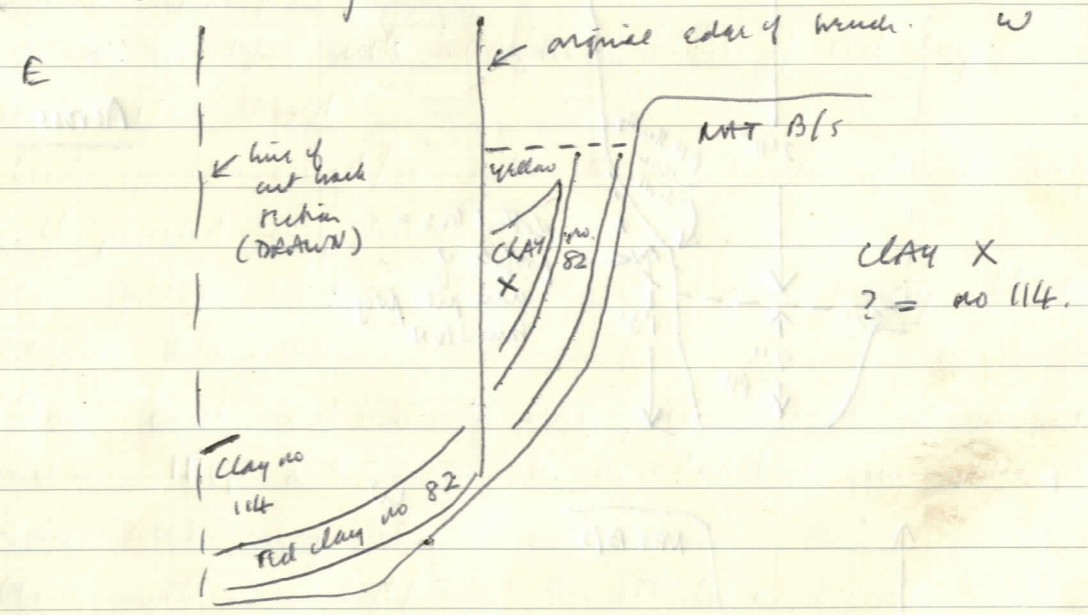 original edge of trench. W
E
NAT B/S
line of
cut back
section
(DRAWN)
yellow
CLAY
X
no.
82
CLAY X
? = no 114.
Clay no
114
red clay no 82